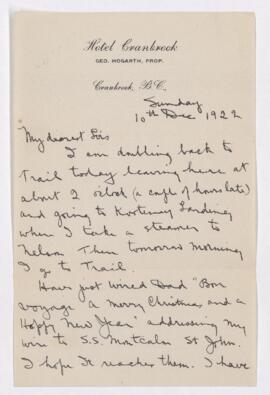 Hotel Cranbrook
GEO. HOGARTH, PROP.
Cranbrook, B.C.,
Sunday
10th Dec 1922
My dearest Lois
I am doubling back to
Trail today leaving here at
about 2 o'clock (a couple of hours late)
and going to Kootenay Landing
when I take a steamer to
Nelson. Then tomorrow morning
I go to Trail.
Have just wired Dad "Bon
voyage a Merry Christmas and a
Happy New Year" addressing my
wire to S.S. Montcalm St John.
I hope it reaches them. I have